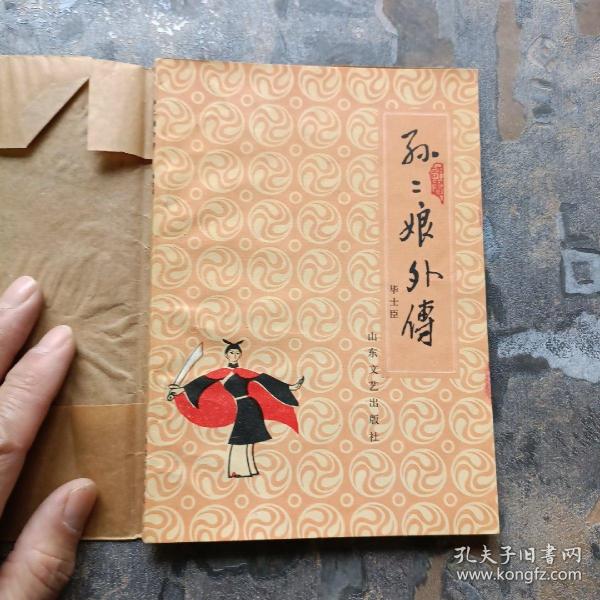 孙二娘外傳
評書
毕士臣
山东文艺出版社
孔夫子旧书网
www.kongfz.com